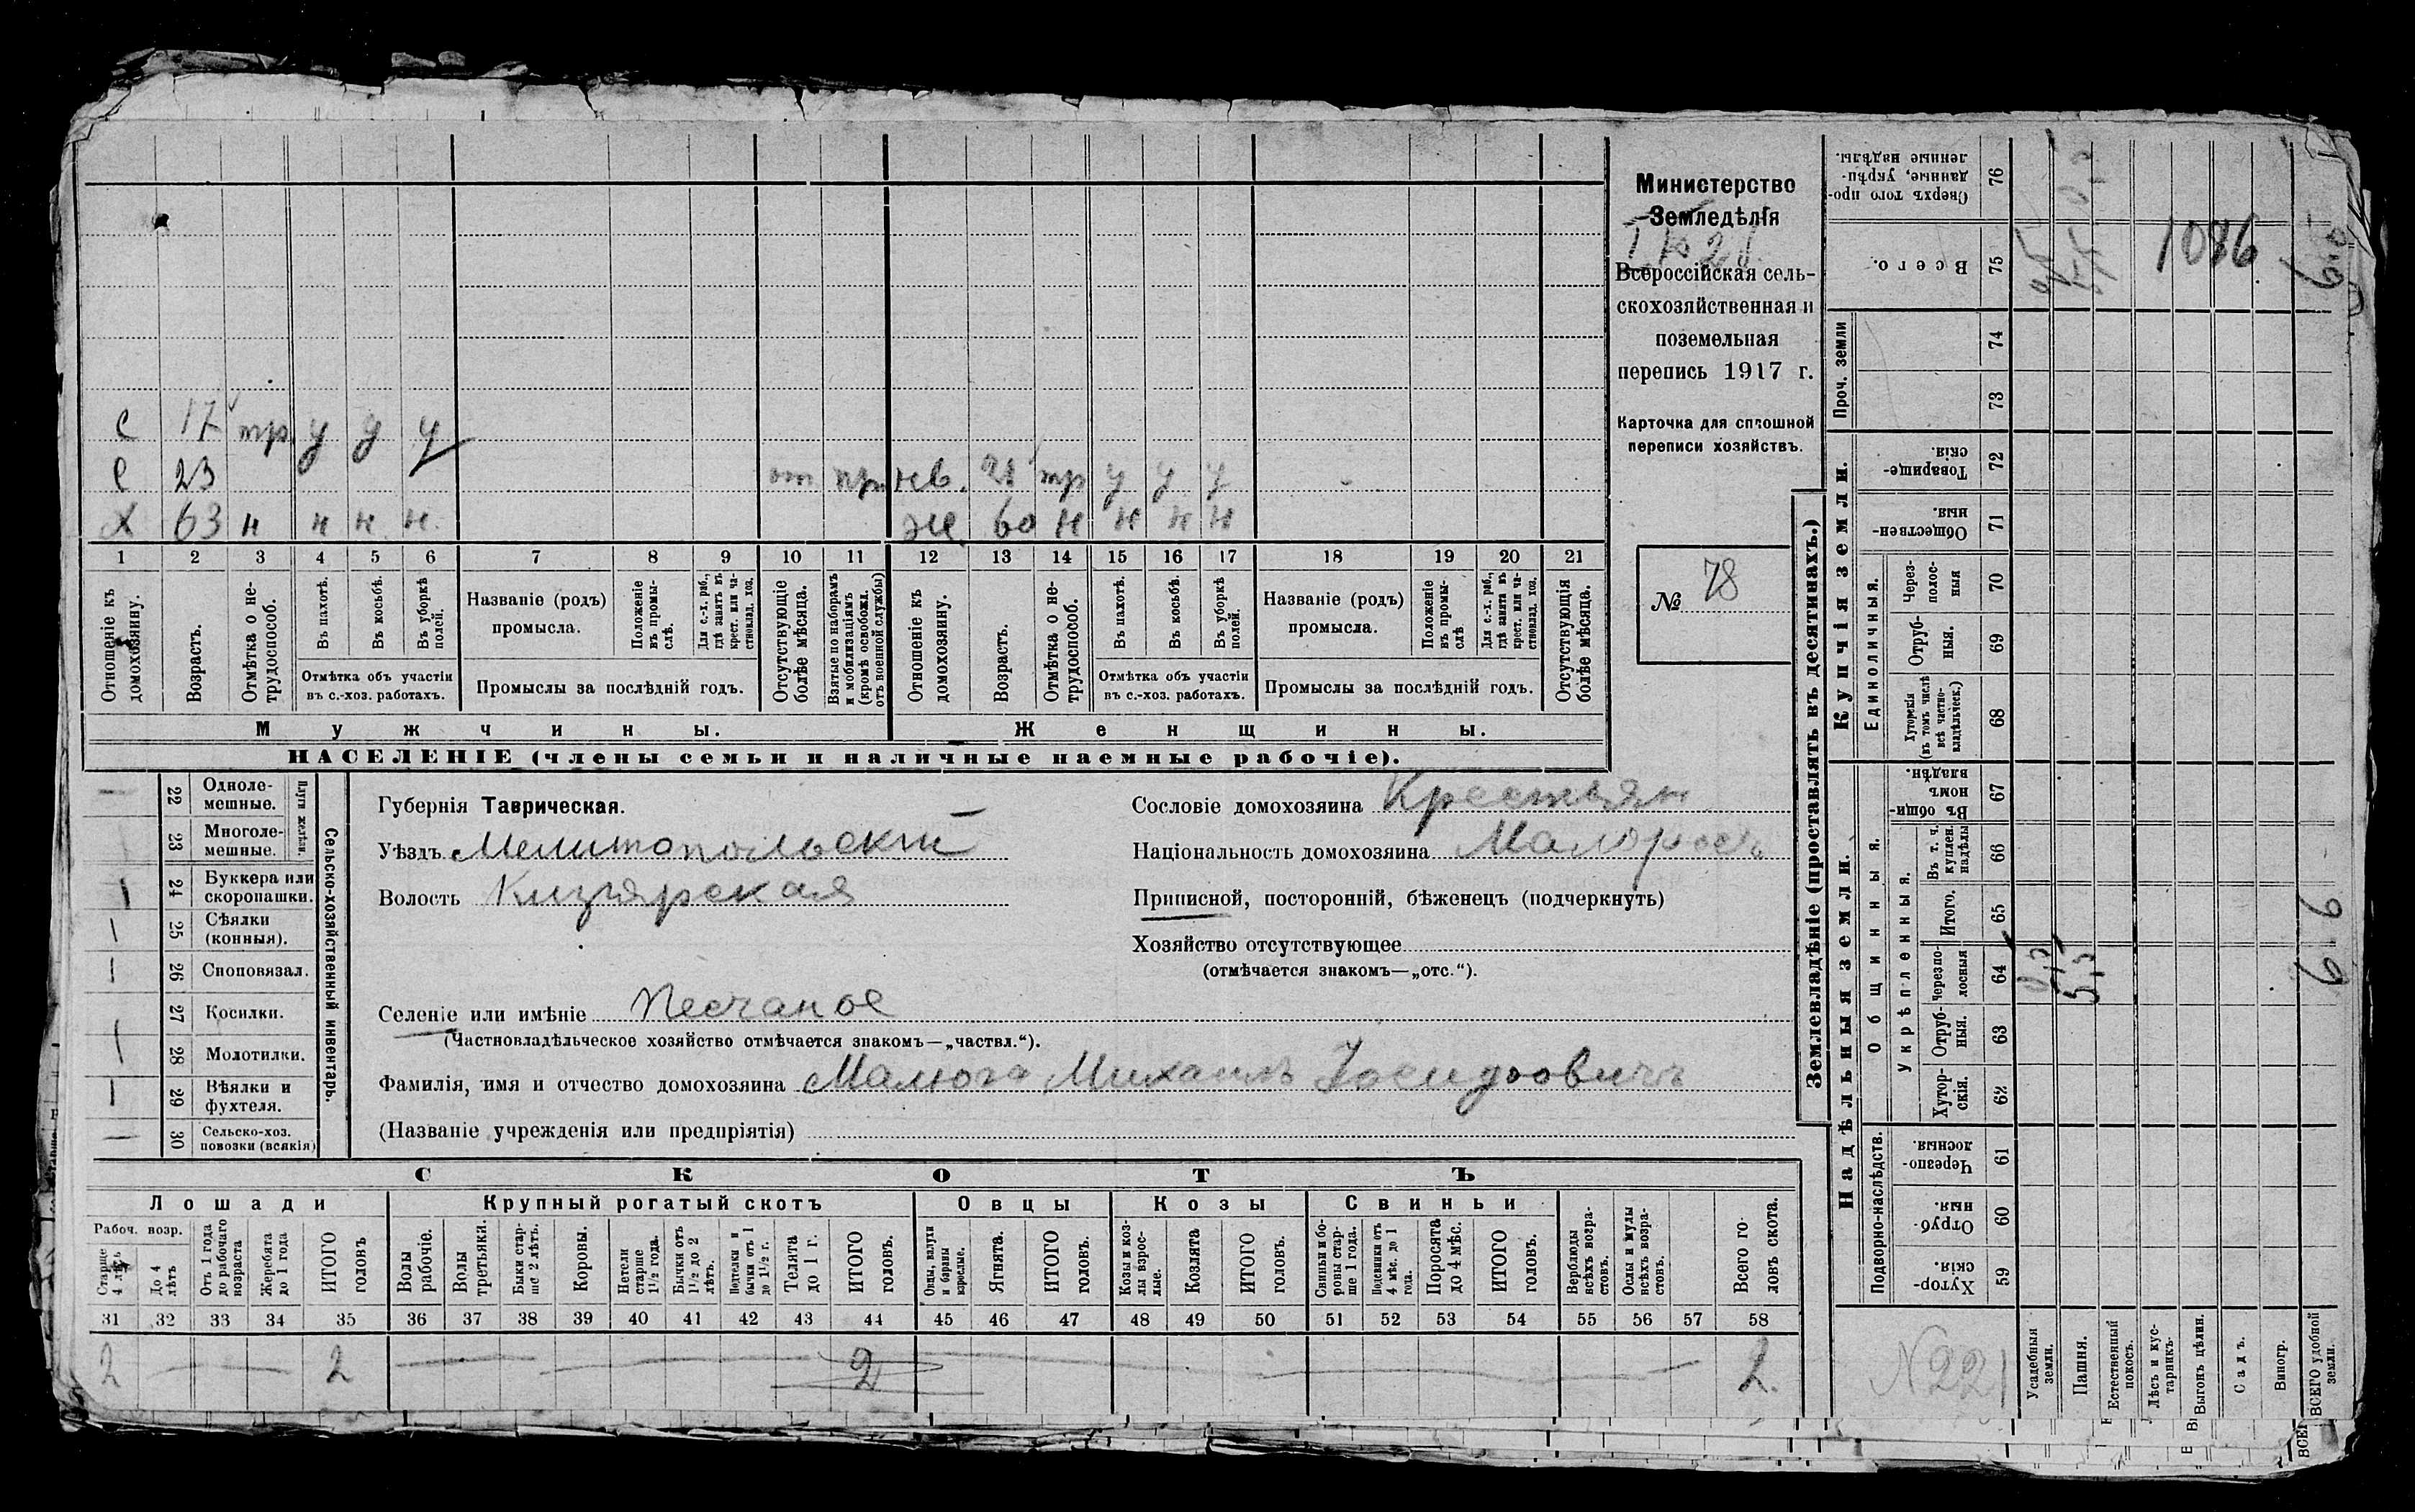 С 17 тр у у у
С 23 от пр нв. тр у у у
Х 63 н н н н. же 60 н н н н
1 2 3 4 5 6 7 8 9 10 11 12 13 14 15 16 17 18 19 20 21
Отношеніе къ домохозяину.
Возрастъ.
Отмѣтка о нетрудоспособ.
Въ пахотѣ.
Въ косьбѣ.
Въ уборкѣ полей.
Отмѣтка объ участіи
въ с.-хоз. работахъ.
Названіе (родъ)
промысла.
Положеніе въ промыслѣ.
Для с.-х. раб., гдѣ занятъ въ крест. или частновлад. хоз.
Промыслы за послѣдній годъ.
Отсутствующіе болѣе мѣсяца.
Взятые по наборамъ и мобилизаціямъ (кромѣ освобожд. отъ военной службы)
Отношеніе къ домохозяину.
Возрастъ.
Отмѣтка о нетрудоспособ.
Въ пахотѣ.
Въ косьбѣ.
Въ уборкѣ полей.
Отмѣтка объ участіи
въ с.-хоз. работахъ.
Названіе (родъ)
промысла.
Положеніе въ промыслѣ
Для с.-х. раб., гдѣ занята въ крест. или частновлад. хоз.
Промыслы за послѣдній годъ.
Отсутствующія болѣе мѣсяца.
Мужчины.
Женщины.
НАСЕЛЕНІЕ (члены семьи и наличные наемные рабочіе).
Министерство
Земледѣлія
Всероссійская сель-
скохозяйственная и
поземельная
перепись 1917 г.
Карточка для сплошной
переписи хозяйствъ.
№ 78
Сельско-хозяйственный инвентарь.
Плуги желѣзн.
22 Одноле-
мешные.
23 Многоле-
мешные.
24 Буккера или
скоропашки.
25 Сѣялки
(конныя).
26 Сноповязал.
27 Косилки.
28 Молотилки.
29 Вѣялки и
фухтеля.
30 Сельско-хоз.
повозки (всякія)
Губернія Таврическая.
Уѣздъ Мелитопольскій
Волость Кизіярская
Селеніе или имѣніе Песчаное
(Частновладѣльческое хозяйство отмѣчается знакомъ—„частвл.“).
Фамилія, имя и отчество домохозяина Малюга Михаилъ
(Названіе учрежденія или предпріятія)
Сословіе домохозяина Крестьян
Національность домохозяина Малороссъ
Приписной, посторонній, бѣженецъ (подчеркнуть)
Хозяйство отсутствующее
(отмѣчается знакомъ—„отс.“).
СКОТЪ
Лошади
Рабоч. возр.
Старше 4 лѣтъ
До 4 лѣтъ
Отъ 1 года до рабочаго возраста
Жеребята до 1 года
ИТОГО головъ
Крупный рогатый скотъ
Волы рабочіе.
Волы третьяки.
Быки старше 2 лѣтъ.
Коровы.
Нетели старше 1½ года.
Бычки отъ 1½ до 2 лѣтъ.
Подтелки и бычки отъ 1 до 1½ г.
Телята до 1 г.
ИТОГО головъ.
Овцы
Овцы, валухи и бараны взрослые.
Ягнята.
ИТОГО головъ.
Козы
Козы и козлы взрослые.
Козлята
ИТОГО головъ.
Свиньи
Свиньи и боровы старше 1 года.
Подсвинки отъ 4 мѣс. до 1 года.
Поросята до 4 мѣс.
ИТОГО головъ.
Верблюды всѣхъ возрастовъ.
Ослы и мулы всѣхъ возрастовъ.
Всего головъ скота.
31 32 33 34 35 36 37 38 39 40 41 42 43 44 45 46 47 48 49 50 51 52 53 54 55 56 57 58
2 2 2 2.
Землевладѣніе (проставлять въ десятинахъ.)
Купчія земли.
Надѣльныя земли.
Проч. земли
Единоличныя.
Общинныя.
Укрѣпленныя.
Подворно-наслѣдств.
Сверхъ того проданные, укрѣпленные надѣлы. 76
Всего. 75
74
73
Товарищескія. 72
Общественныя. 71
Черезполосныя 70
Отрубныя. 69
Хуторскія (въ томъ числѣ всѣ частновладѣльческ.) 68
Въ общинномъ владѣн. 67
Въ т. ч. куплен. надѣлы 66
Итого. 65
Черезполосныя 64
Отрубныя. 63
Хуторскія. 62
Черезполосныя 61
Отрубныя. 60
Хуторскія. 59
1086
N221
Усадебныя земли.
Пашня.
Естественный покосъ.
Лѣсъ и кустарникъ.
Выгонъ цѣлин.
Садъ.
Виногр.
ВСЕГО удобной земли.